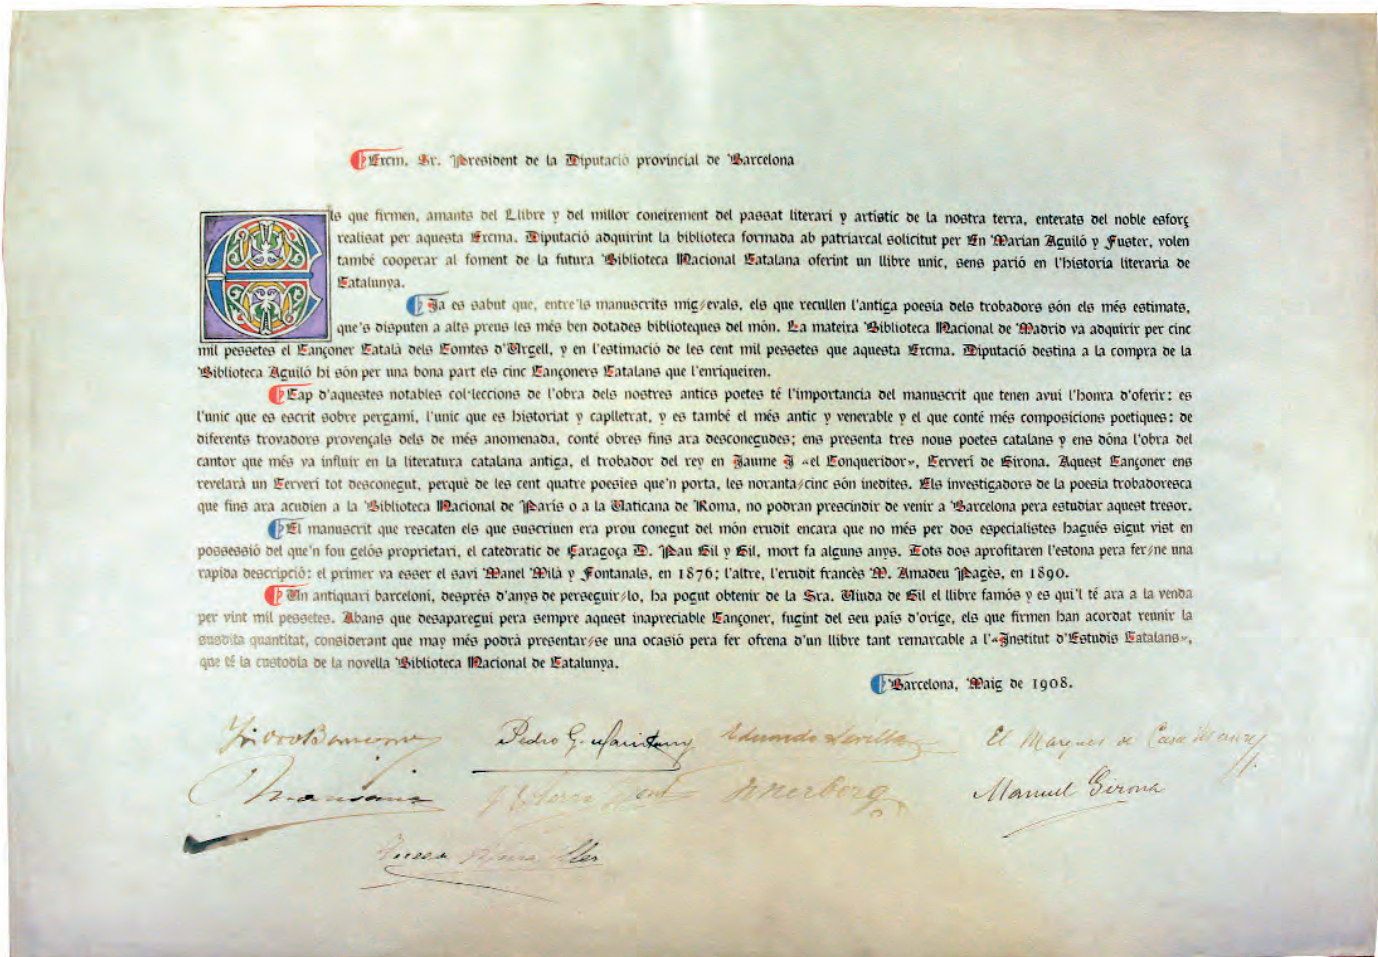 Excm. Sr. President de la Diputació provincial de Barcelona
Els que firmen, amants del Llibre y del millor coneixement del passat literari y artistic de la nostra terra, enterats del noble esforç
realisat per aquesta Excma. Diputació adquirint la biblioteca formada ab patriarcal solicitut per En Marian Aguiló y Fuster, volen
també cooperar al foment de la futura Biblioteca Nacional Catalana oferint un llibre unic, sens parió en l'historia literaria de
Catalunya.
Ja es sabut que, entre'ls manuscrits mig-evals, els que recullen l'antiga poesia dels trobadors són els més estimats,
que's disputen a alts preus les més ben dotades biblioteques del món. La mateixa Biblioteca Nacional de Madrid va adquirir per cinc
mil pessetes el Cançoner Català dels Comtes d'Urgell, y en l'estimació de les cent mil pessetes que aquesta Excma. Diputació destina a la compra de la
Biblioteca Aguiló hi són per una bona part els cinc Cançoners Catalans que l'enriqueixen.
Cap d'aquestes notables col·leccions de l'obra dels nostres antics poetes té l'importancia del manuscrit que tenen avui l'honra d'oferir: es
l'unic que es escrit sobre pergamí, l'unic que es historiat y caplletrat, y es també el més antic y venerable y el que conté més composicions poetiques: de
diferents trovadors provençals dels de més anomenada, conté obres fins ara desconegudes; ens presenta tres nous poetes catalans y ens dóna l'obra del
cantor que més va influir en la literatura catalana antiga, el trobador del rey en Jaume I «el Conqueridor», Cerverí de Girona. Aquest Cançoner ens
revelarà un Cerverí tot desconegut, perquè de les cent quatre poesies que'n porta, les noranta-cinc són inedites. Els investigadors de la poesia trobadoresca
que fins ara acudien a la Biblioteca Nacional de París o a la Vaticana de Roma, no podran prescindir de venir a Barcelona pera estudiar aquest tresor.
El manuscrit que rescaten els que suscriuen era prou conegut del món erudit encara que no més per dos especialistes hagués sigut vist en
possessió del que'n fou gelós proprietari, el catedratic de Çaragoça D. Pau Gil y Gil, mort fa alguns anys. Tots dos aprofitaren l'estona pera fer-ne una
rapida descripció: el primer va esser el savi Manel Milà y Fontanals, en 1876; l'altre, l'erudit francès M. Amadeu Pagès, en 1890.
Un antiquari barceloní, després d'anys de perseguir-lo, ha pogut obtenir de la Sra. Viuda de Gil el llibre famós y es qui'l té ara a la venda
per vint mil pessetes. Abans que desaparegui pera sempre aquest inapreciable Cançoner, fugint del seu país d'orige, els que firmen han acordat reunir la
susdita quantitat, considerant que may més podrà presentar-se una ocasió pera fer ofrena d'un llibre tant remarcable a l'«Institut d'Estudis Catalans»,
que té la custodia de la novella Biblioteca Nacional de Catalunya.
Barcelona, Maig de 1908.
Pedro G. Maristany Eduardo Sevilla El Marques de Casa
Manuel Girona